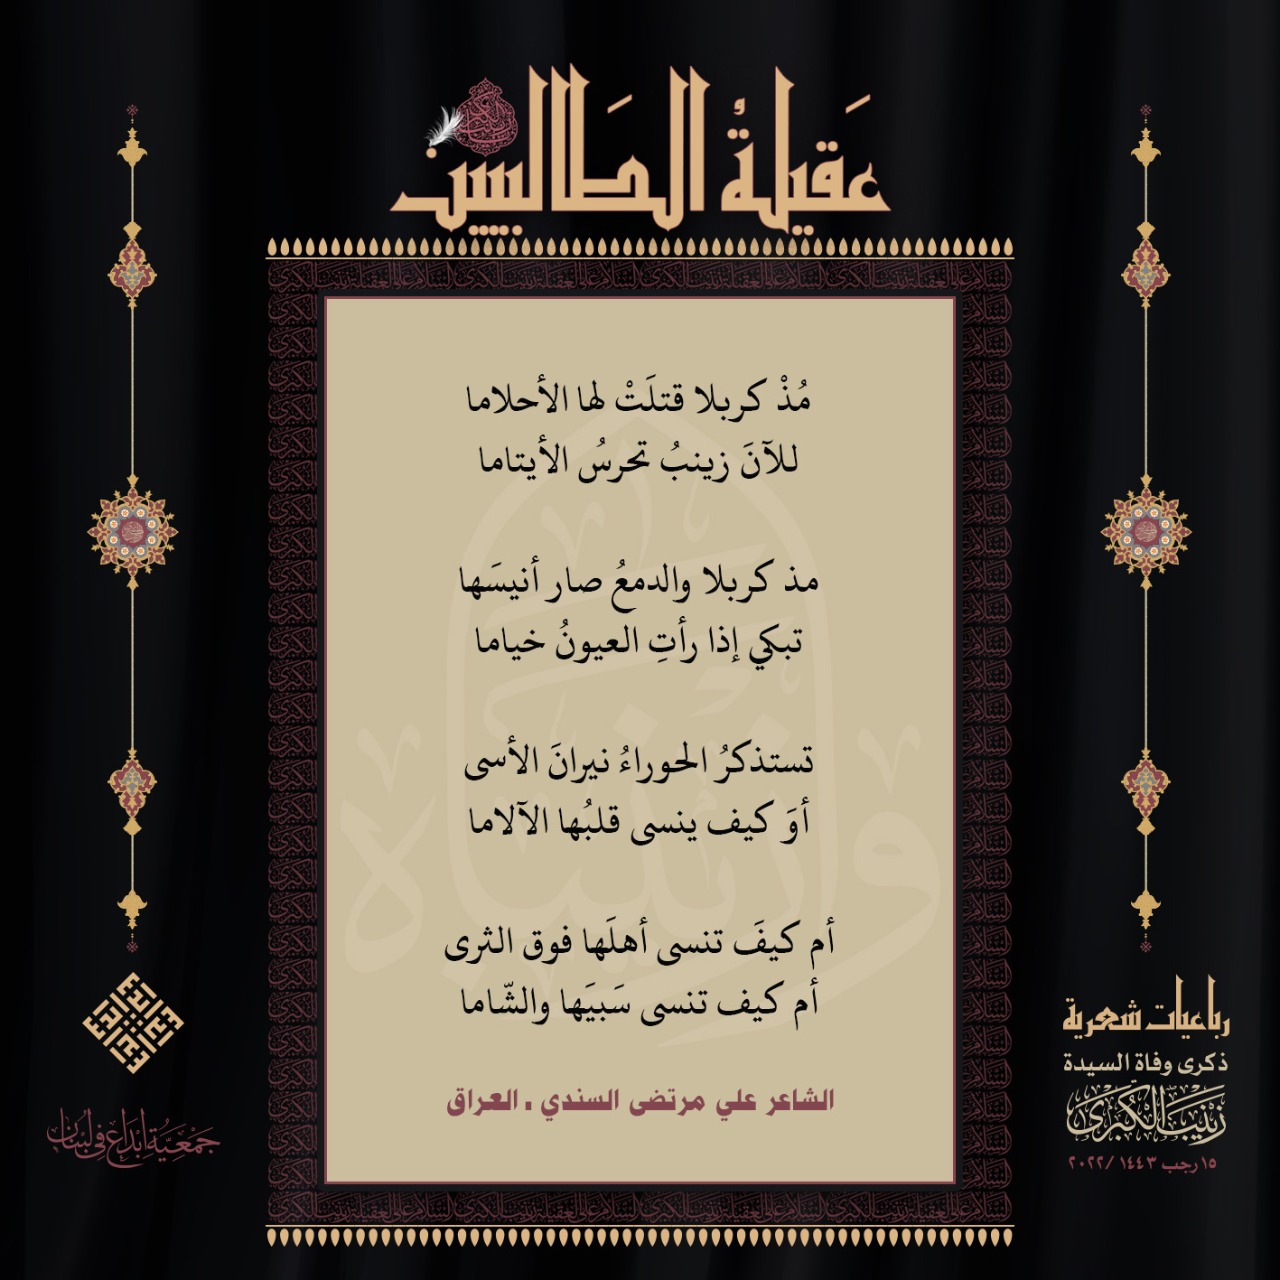 عَقيلةُ الطَالبيين
مُذْ كربلا قتلَتْ لها الأحلاما
للآنَ زينبُ تحرسُ الأيتاما
مذ كربلا والدمعُ صار أنيسَها
تبكي إذا رأتِ العيونُ خياما
تستذكرُ الحوراءُ نيرانَ الأسى
أوَ كيف ينسى قلبُها الآلاما
أم كيفَ تنسى أهلَها فوق الثرى
أم كيف تنسى سَبيَها والشّاما
الشاعر علي مرتضى السندي . العراق
رباعيات شعرية
ذكرى وفاة السيدة
زَيْنَبَ الْكُبْرَى
١٥ رجب ١٤٤٣ /٢٠٢٢
جَمْعِيَّةُ إِبْدَاع فِي لُبْنَان
وا زينباه